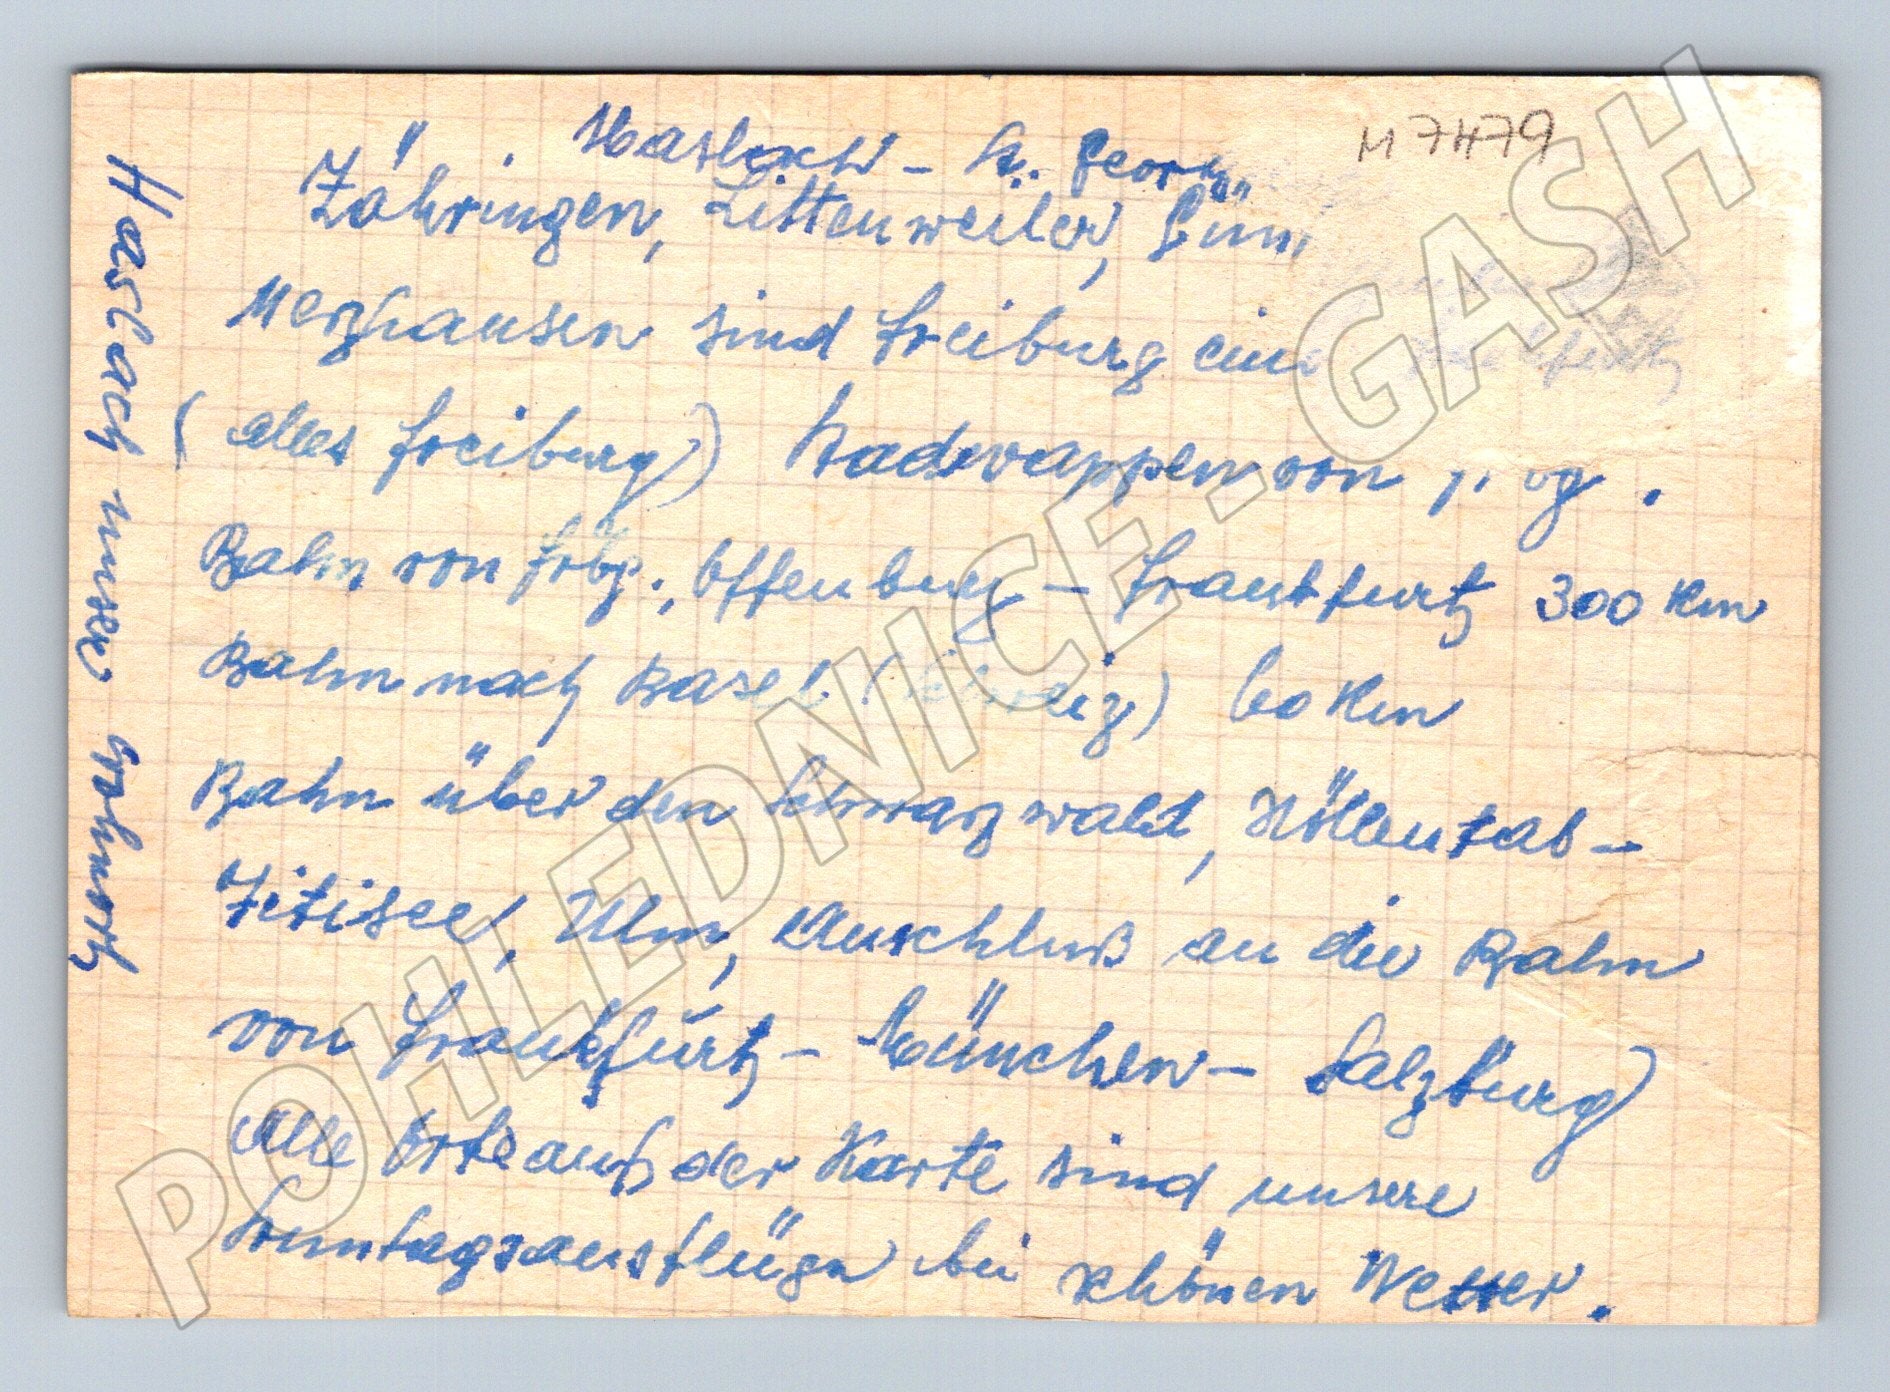 M 7479
Haslach - St. Georgen
Zähringen, Littenweiler, Gün
Merzhausen sind Freiburg ein
(alles Freiburg) Stadtwappen von
Bahn von Frbg., Offenburg - Frankfurt 300 Km
Bahn nach Basel (Schweiz) 60 Km
Bahn über den Schwarzwald, Höllental -
Titisee, Ulm, Anschluß an die Bahn
von Frankfurt - München - Salzburg)
Alle Orte auf der Karte sind unsere
Sonntagsausflüge bei schönen Wetter.
Haslach unser Wohnort
POHLEDNICE - GASH